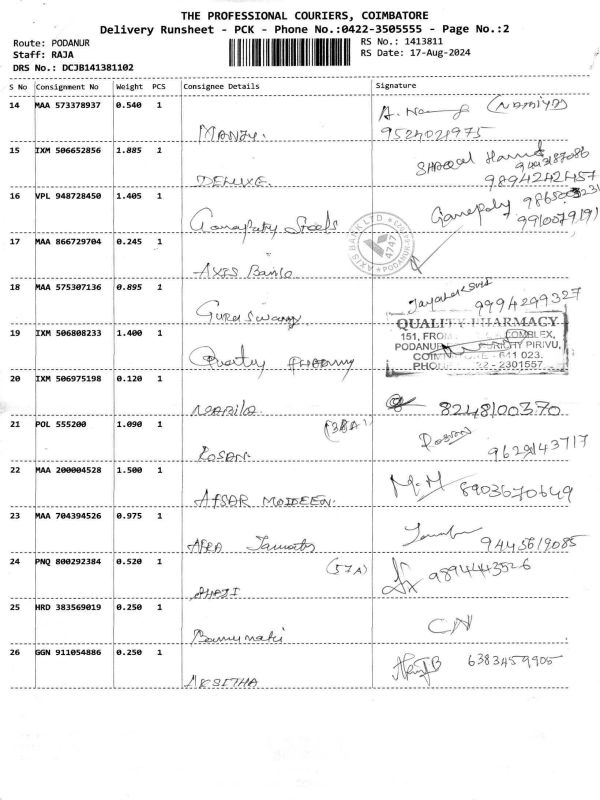 THE PROFESSIONAL COURIERS, COIMBATORE
Delivery Runsheet - PCK - Phone No.:0422-3505555 - Page No.:2
Route: PODANUR
RS No.: 1413811
Staff: RAJA
RS Date: 17-Aug-2024
DRS No.: DCJB141381102
S No Consignment No Weight PCS Consignee Details Signature
14 MAA 573378937 0.540 1
9524021975
15 IXM 506652856 1.885 1
DELUXE.
9894242457
16 VPL 948728450 1.405 1
Ganapaty Steels
Ganepaty
17 MAA 866729704 0.245 1
AXIS BANK LTD
AXIS Bank
18 MAA 575307136 0.895 1
Guru Swamy
9994299327
19 IXM 506808233 1.400 1
QUALITY PHARMACY
151, COMPLEX,
PODANUR PIRIVU,
641 023.
2301557
Quality Pharmacy
20 IXM 506975198 0.120 1
8248100370
21 POL 555200 1.090 1
ROSAN.
9629143717
22 MAA 200004528 1.500 1
AFSAR MOIDEEN.
8903670649
23 MAA 704394526 0.975 1
9445619085
24 PNQ 800292384 0.520 1
(57A)
9894443526
25 HRD 383569019 0.250 1
CN
26 GGN 911054886 0.250 1
6383459905